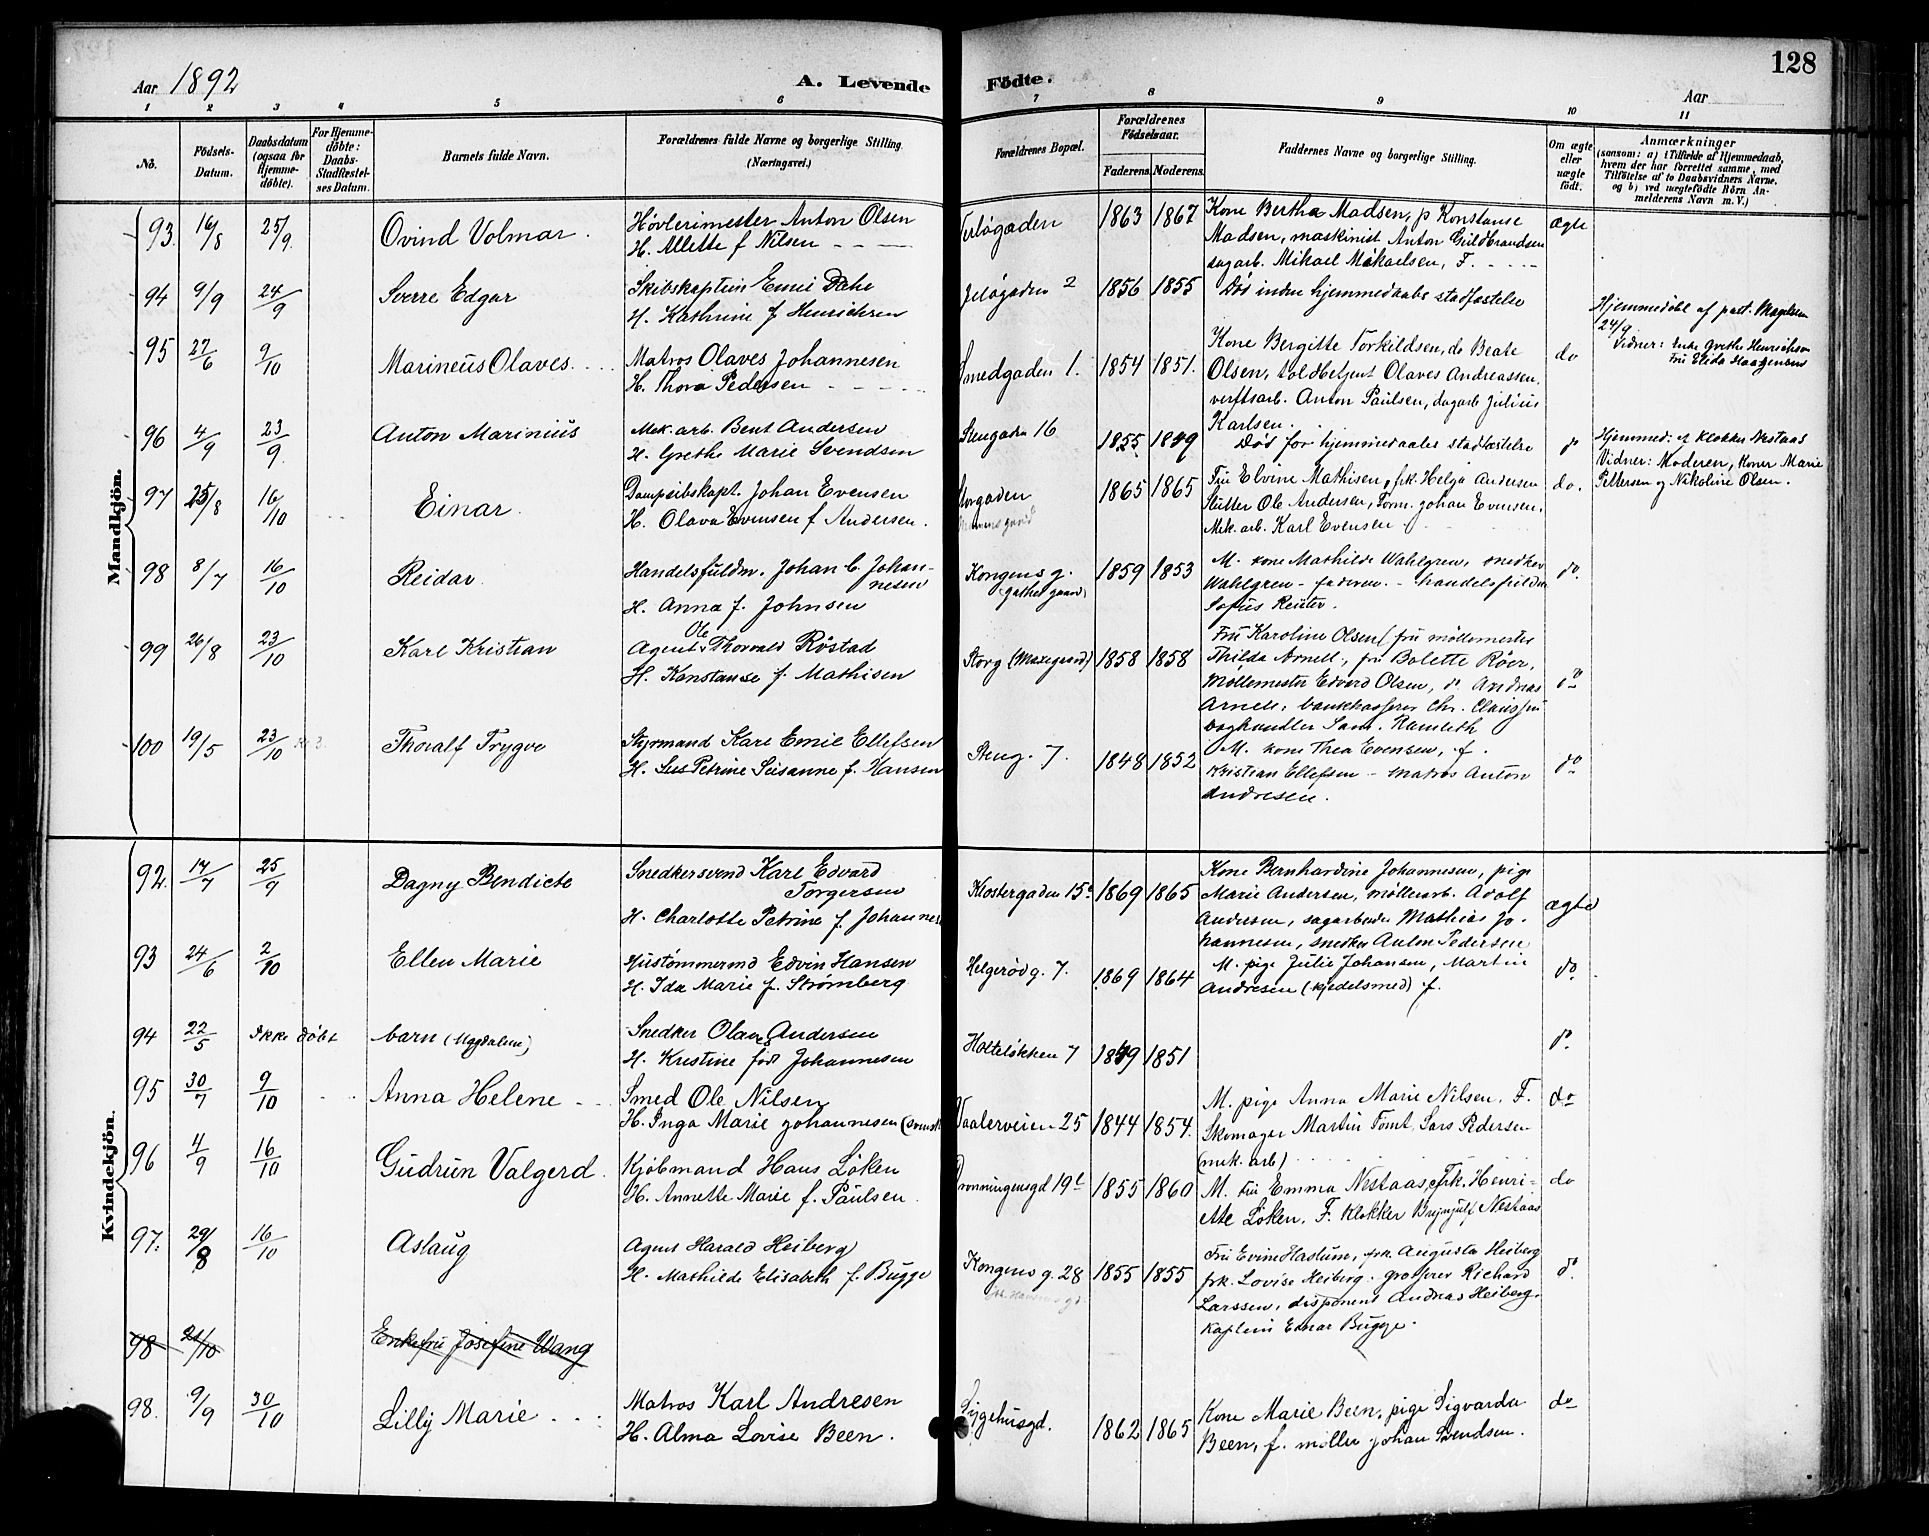 128
Aar 1892
A. Levende Födte.
Aar
1 2 3 4 5 6 7 8 9 10 11
No.
Födsels-Datum.
Daabsdatum (ogsaa for Hjemme-döbte).
For Hjemme-döbte: Daabs-Stadfæstel-ses Datum.
Barnets fulde Navn.
Forældrenes fulde Navne og borgerlige Stilling. (Næringsvei.)
Forældrenes Bopæl.
Forældrenes Födselsaar.
Faderens. Moderens.
Faddernes Navne og borgerlige Stilling.
Om ægte eller uægte födt.
Anmærkninger
(saasom: a) i Tilfælde af Hjemmedaab, hvem der har forrettet samme, med Tilföielse af to Daabsvidners Navne, og b) ved uægtefödte Börn An-melderens Navn m. V.)
Mandkjön.
93. 16/8 25/9. Övind Volmar.
Høvlerimester Anton Olsen
H. Allette f Nilsen
1863 1867
Kone Bertha Madsen, p Konstanse
Madsen, maskinist Anton Guldbrandsen
dagarb. Mikael Mikaelsen, F.
ægte
94 9/9 24/9 Sverre Edgar
Skibskaptein Emil Dahl
H. Kathrine f Henrichsen
Jeløgaden 2
1856 1855
Død inden hjemmedaabs stadfæstelse
Hjemmedöbt af past. Magelssen
24/9
Vidner: Enke Grethe Henrichsen
Fru Elida Haagensen
95 27/6 9/10 Marineus Olaves.
Matros Olaves Johannesen
H. Thora Pedersen
Smedgaden 1.
1854 1851.
Kone Bergitte Torkildsen, do Beate
Olsen, toldbetjent Olaves Andreassen,
verftsarb. Anton Paulsen, dagarb Julius
Karlsen.
do
96 4/9 23/9. Anton Marinius
Mek. arb. Bent Andersen
H. Grethe Marie Svendsen
Stengaden 16
1855 1849
Død før hjemmedaabes stadfæstelse
d°
Hjemmed: af Klokker Nestaas
Vidner: Moderen, Koner Marie
Pettersen og Nikoline Olsen.
97 25/8 16/10 Einar.
Dampskibskapt. Johan Evensen
H. Olava Evensen f. Andersen.
Storgaden
1865 1865
Fru Elvine Mathisen, frk. Helga Andersen
Slutter Ole Andersen, Form. Johan Evensen,
Mek. arb. Karl Evensen
do.
98 8/7 16/10 Reidar.
Handelsfuldm. Johan C. Johan-
nesen
H. Anna f. Johnsen
Kongens g.
1859 1853
M. kone Mathilde Wahlgren, snedker
Wahlgren - faderen. - handelsfuldm
Sofus Reuter.
do.
99 26/8 23/10 Karl Kristian
Agent Ole Thorvald Röstad
H. Konstanse f. Mathisen
Storg
1858 1858
Fru Karoline Olsen (fru möllemester
Thilda Arnell, fru Bolette Röer,
Möllemester Edvard Olsen, d° Andreas
Arnell, bankkasserer Chr. Claussen
boghandler Sam. Ramleth
d°
100 19/5 23/10 Thoralf Trygve
Styrmand Karl Emil Ellefsen
H. Lus Petrine Susanne f. Hansen
Steng. 7.
1848 1852
M. kone Thea Evensen, f.
Kristian Ellefsen - matros Anton
Andresen.
do
Kvindekjön.
92. 17/7 25/9 Dagny Bendicte
Snedkersvend Karl Edvard
Torgersen
H. Charlotte Petrine f. Johannes
Klostergaden 15
1869 1865
Kone Bernhardine Johannesen, pige
Marie Andersen, møllearb. Adolf
Andersen, sagarbeider Mathias Jo-
hannesen, snedker Anton Pedersen
ægte
93 24/6 2/10 Ellen Marie
Hustømmermd Edvin Hansen
H. Ida Marie f. Strømberg
Helgerød g. 7.
1869 1864
M. pige Julie Johansen, Martin
Andresen (kjedelsmed) f.
do.
94 22/5 Ikke döbt barn (Magdalene)
Snedker Olaves Andersen
H. Kristine född Johannesen
Holteløkken 7
1849 1851
d°
95 30/7 9/10 Anna Helene
Smed Ole Nilsen
H. Inga Marie Johannesen (svensk
Vaalerveien 25
1844 1854.
M. pige Anna Marie Nilsen. F.
Skomager Martin Tomt, Lars Pedersen
(mek. arb)
do
96 4/9 16/10 Gudrun Valgerd.
Kjöbmand Hans Löken
H. Annette Marie f. Paulsen.
Dronningensgd 19
1855 1860
M. Fru Emma Nestaas, frk. Henri-
ette Löken, F. Klokker Brynjulf Nestaas
do
97. 29/8 16/10 Aslaug
Agent Harald Heiberg
H. Mathilde Elisabeth f. Bugge
Kongens g. 28
1855 1855
Fru Evine Haslum, frk. Augusta Heiberg
frk. Lovise Heiberg. grosserer Richard
Larssen, disponent Andreas Heiberg,
Kaptein Einar Bugge.
d°
98 21/10 Enkefru Josefine Wang
98. 9/9 30/10 Lilly Marie
Matros Karl Andresen
H. Alma Lovise Been.
Sygehusgd.
1862 1865
Kone Marie Been, pige Sigvarda
Been, f. møller Johan Svendsen.
do